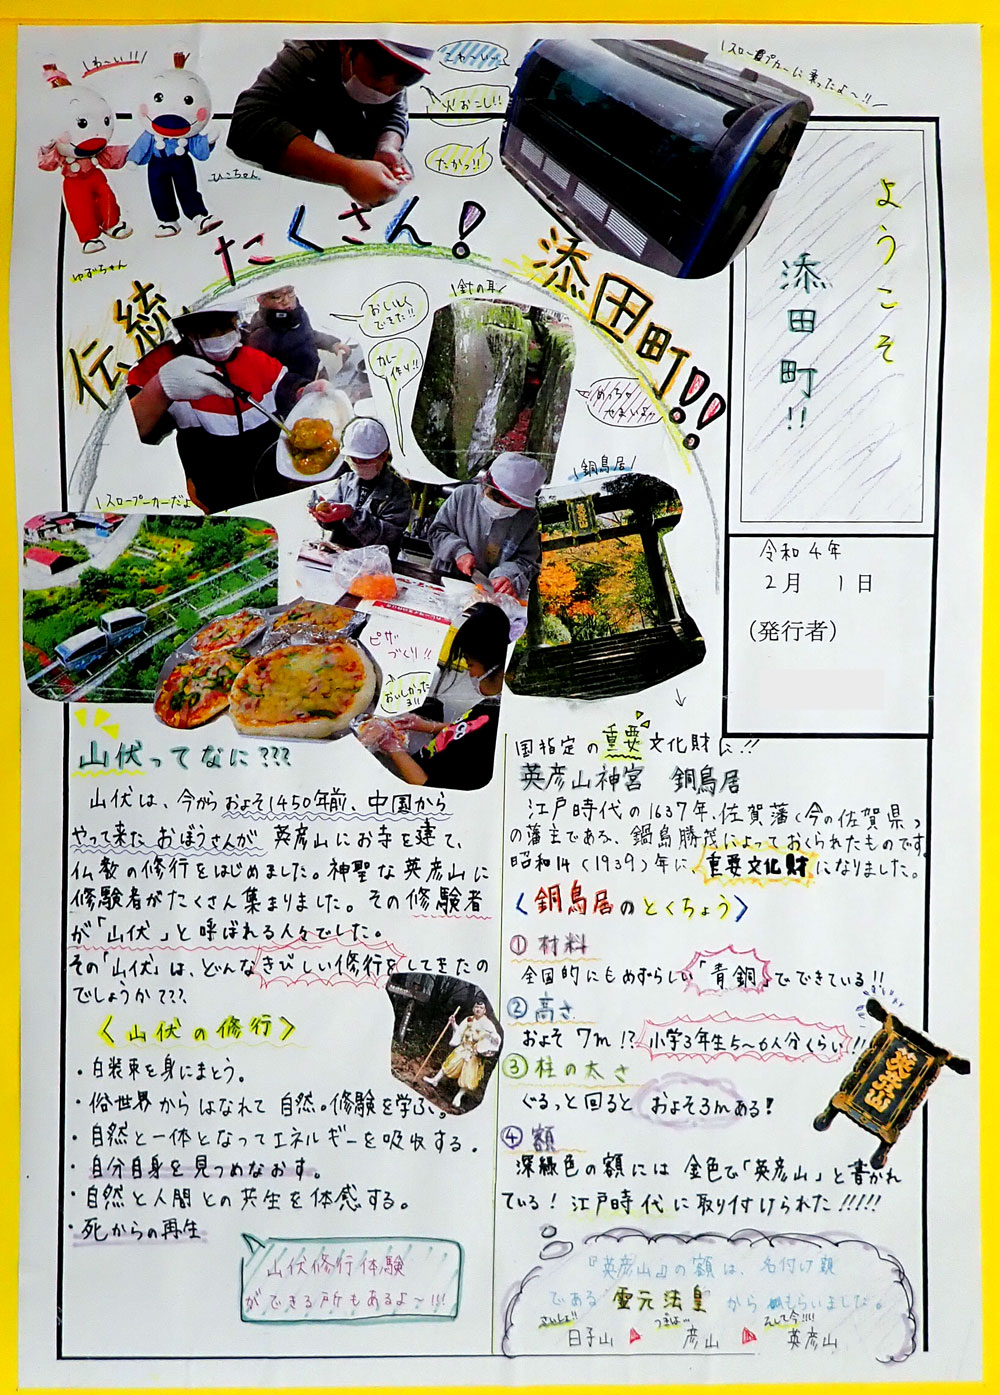 ようこそ
添田町!!
令和4年
2月 1日
(発行者)
\わ〜い!!/
ひこちゃん
ゆずちゃん
火おこし!!
\スロープカーに乗ったよ〜!!/
伝統たくさん! 添田町!!
おいしくできた!!
カレー作り!!
\針の耳/
\銅鳥居/
\スロープカーだよ
ピザづくり!!
おいしかったヨ!!
山伏ってなに???
山伏は、今からおよそ1450年前、中国から
やって来たおぼうさんが英彦山にお寺を建て、
仏教の修行をはじめました。神聖な英彦山に
修験者がたくさん集まりました。その修験者
が「山伏」と呼ばれる人々でした。
その「山伏」は、どんなきびしい修行をしてきたの
でしょうか???
〈山伏の修行〉
・白装束を身にまとう。
・俗世界からはなれて自然。修験を学ぶ。
・自然と一体となってエネルギーを吸収する。
・自分自身を見つめなおす。
・自然と人間との共生を体感する。
・死からの再生
山伏修行体験
ができる所もあるよ〜!!!
国指定の重要文化財に!!
英彦山神宮 銅鳥居
江戸時代の1637年、佐賀藩(今の佐賀県)
の藩主である、鍋島勝茂によっておくられたものです。
昭和14(1939)年に、重要文化財になりました。
〈銅鳥居のとくちょう〉
①材料
全国的にもめずらしい「青銅」でできている!!
②高さ
およそ7m!?小学3年生5〜6人分くらい!!
③柱の太さ
ぐるっと回るとおよそ3mある!
④額
深緑色の額には金色で「英彦山」と書かれ
ている!江戸時代に取り付けられた!!!!!
英彦山
英彦山
『英彦山』の額は、名付け親
である霊元法皇からもらいました。
さいしょ つぎは… そして今!!!
日子山 ▶ 彦山 ▶ 英彦山